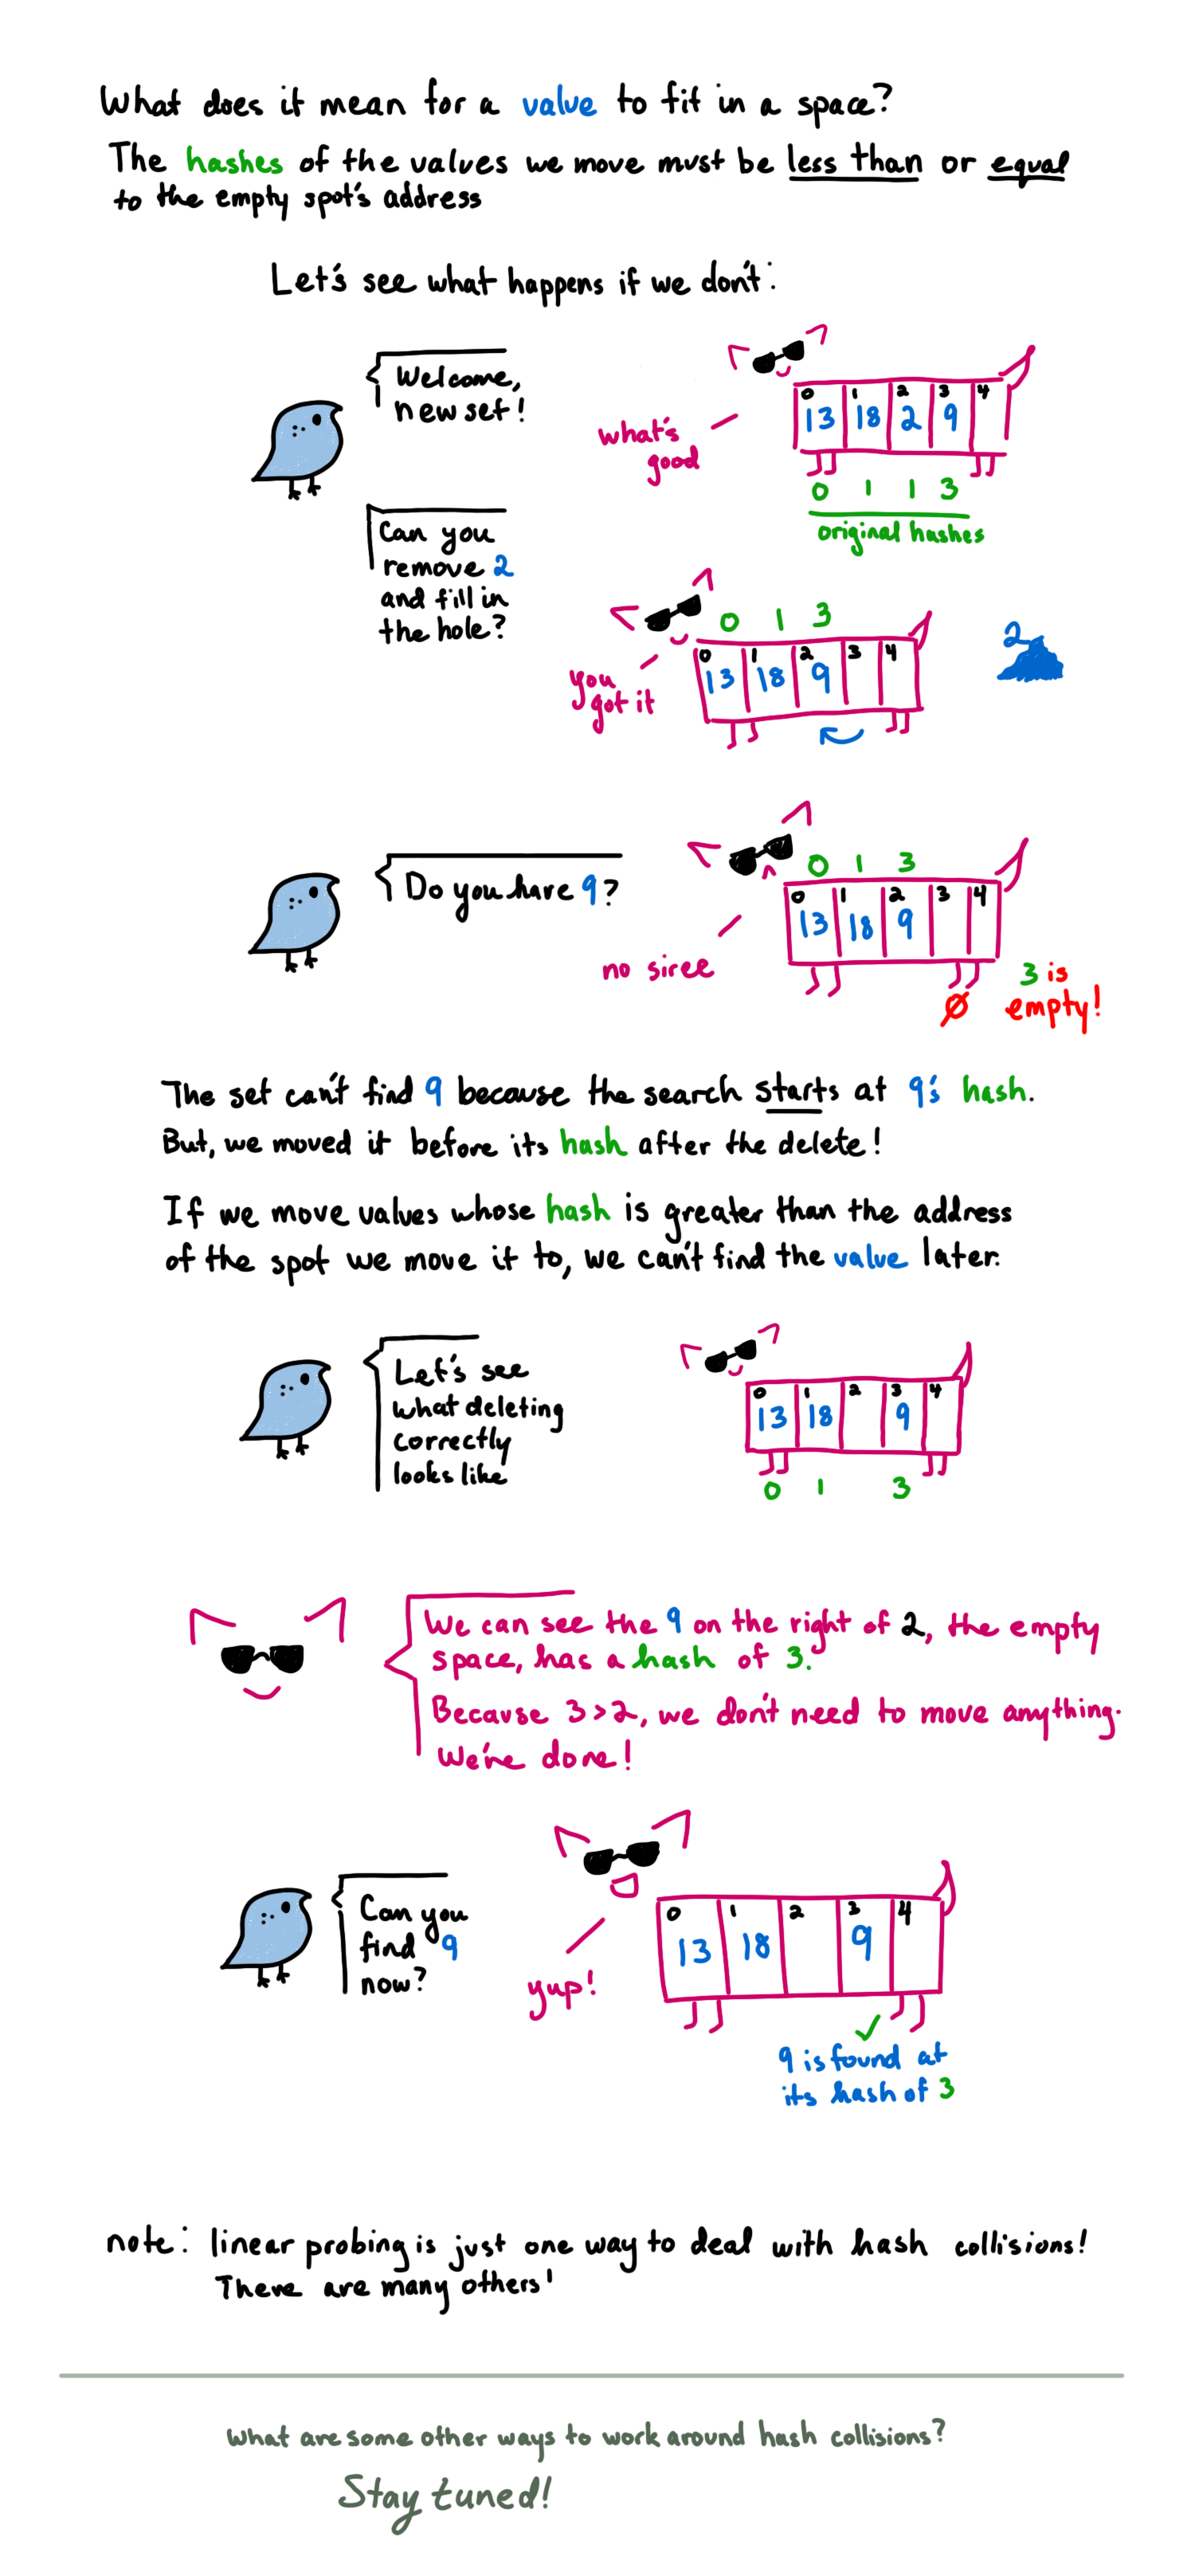 What does it mean for a value to fit in a space?
The hashes of the values we move must be less than or equal
to the empty spot's address
Let's see what happens if we don't:
Welcome,
new set!
what's
good
0 1 2 3 4
13 18 2 9
0 1 1 3
original hashes
Can you
remove 2
and fill in
the hole?
you
got it
0 1 3
0 1 2 3 4
13 18 9
2
Do you have 9?
no siree
0 1 3
0 1 2 3 4
13 18 9
Ø
3 is
empty!
The set can't find 9 because the search starts at 9's hash.
But, we moved it before its hash after the delete!
If we move values whose hash is greater than the address
of the spot we move it to, we can't find the value later.
Let's see
what deleting
correctly
looks like
0 1 2 3 4
13 18 9
0 1 3
We can see the 9 on the right of 2, the empty
space, has a hash of 3.
Because 3>2, we don't need to move anything.
We're done!
Can you
find 9
now?
yup!
0 1 2 3 4
13 18 9
9 is found at
its hash of 3
note: linear probing is just one way to deal with hash collisions!
There are many others!
What are some other ways to work around hash collisions?
Stay tuned!